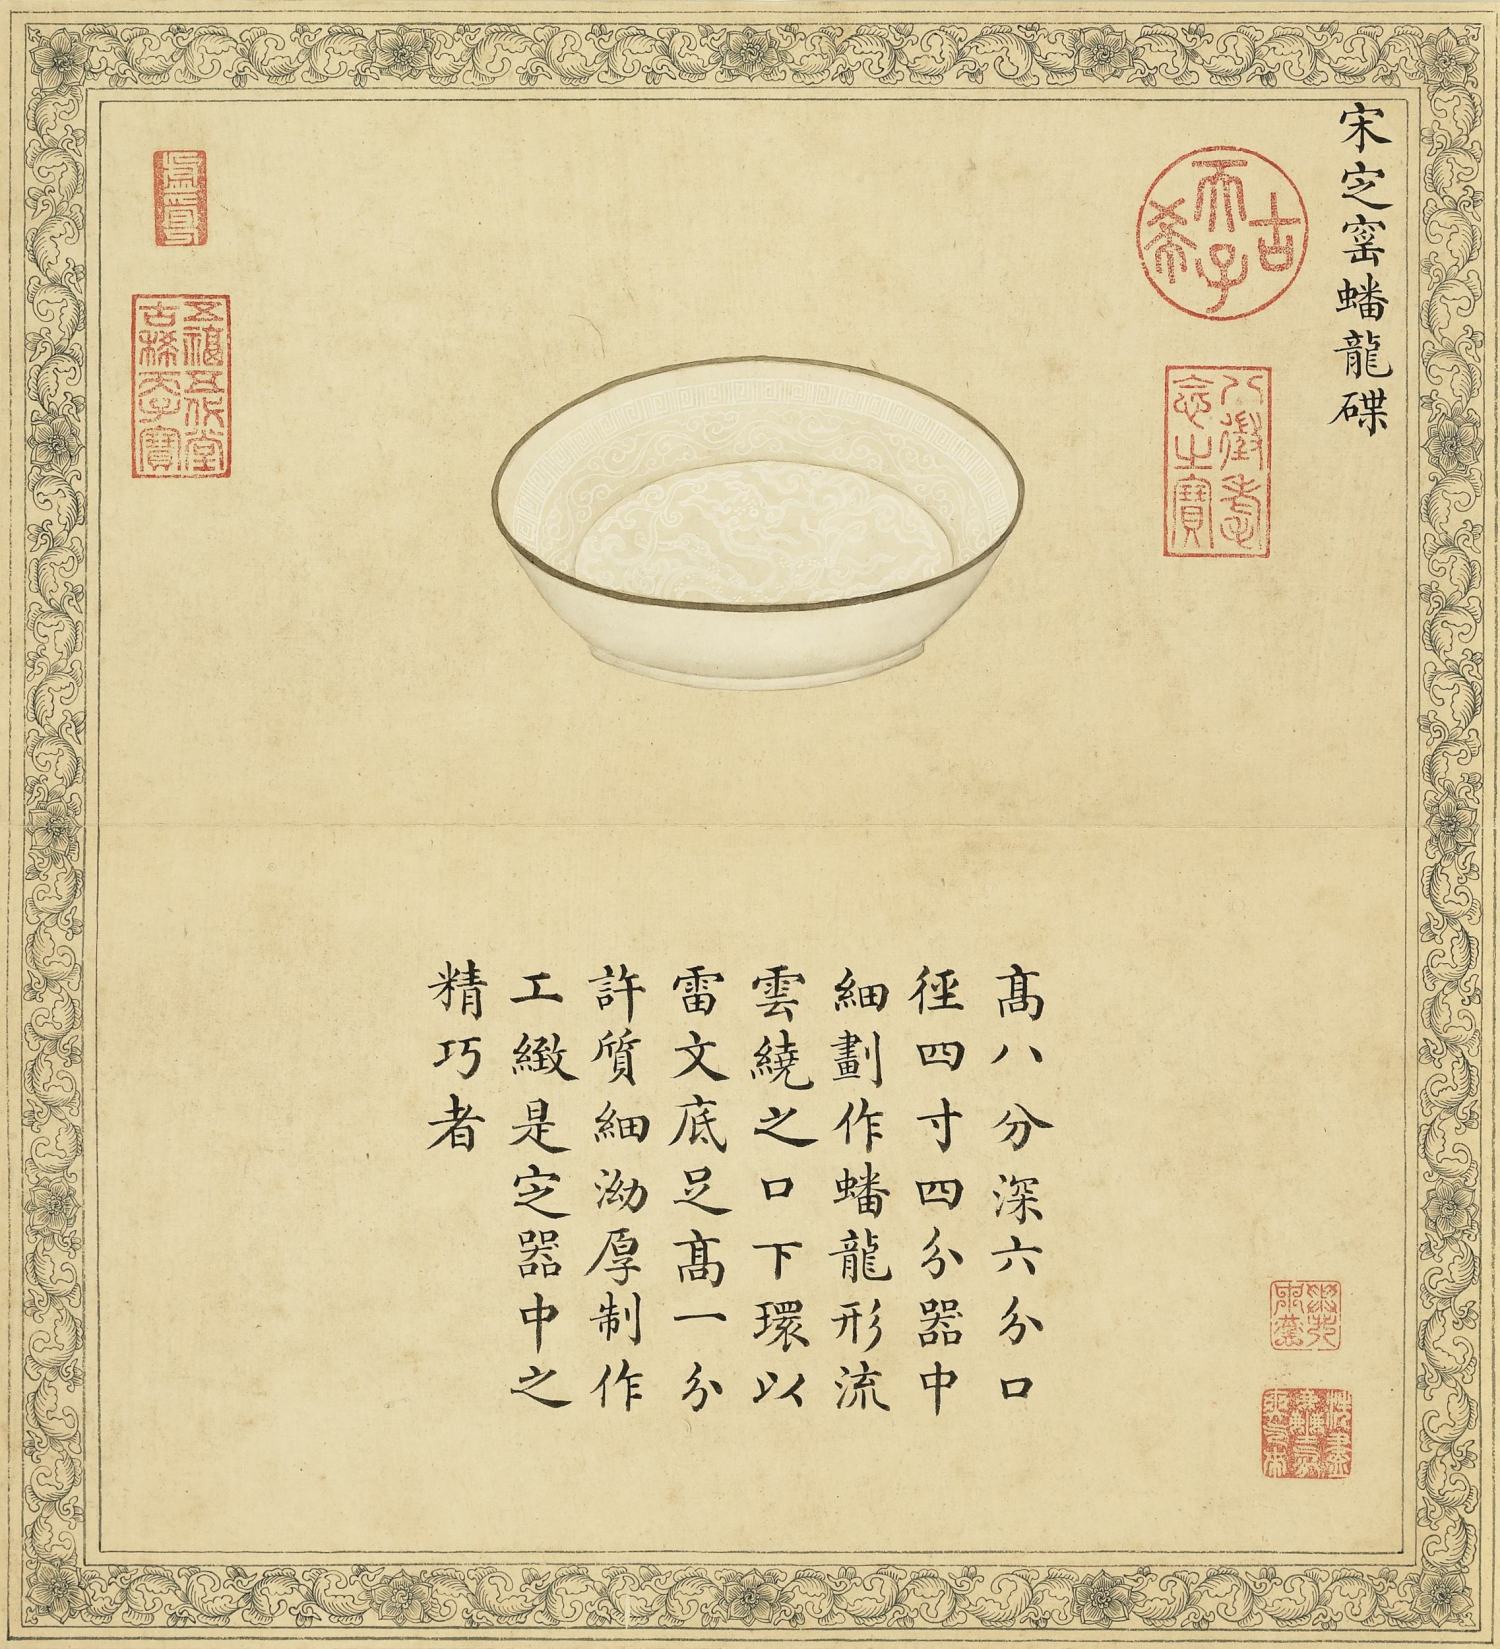 宋定窑蟠龍碟
古希天子
八徵耄念之寶
髙八分深六分口
徑四寸四分器中
細劃作蟠龍形流
雲繞之口下環以
雷文底足髙一分
許質細泑厚制作
工緻是定器中之
精巧者
五福五代堂古稀天子寶